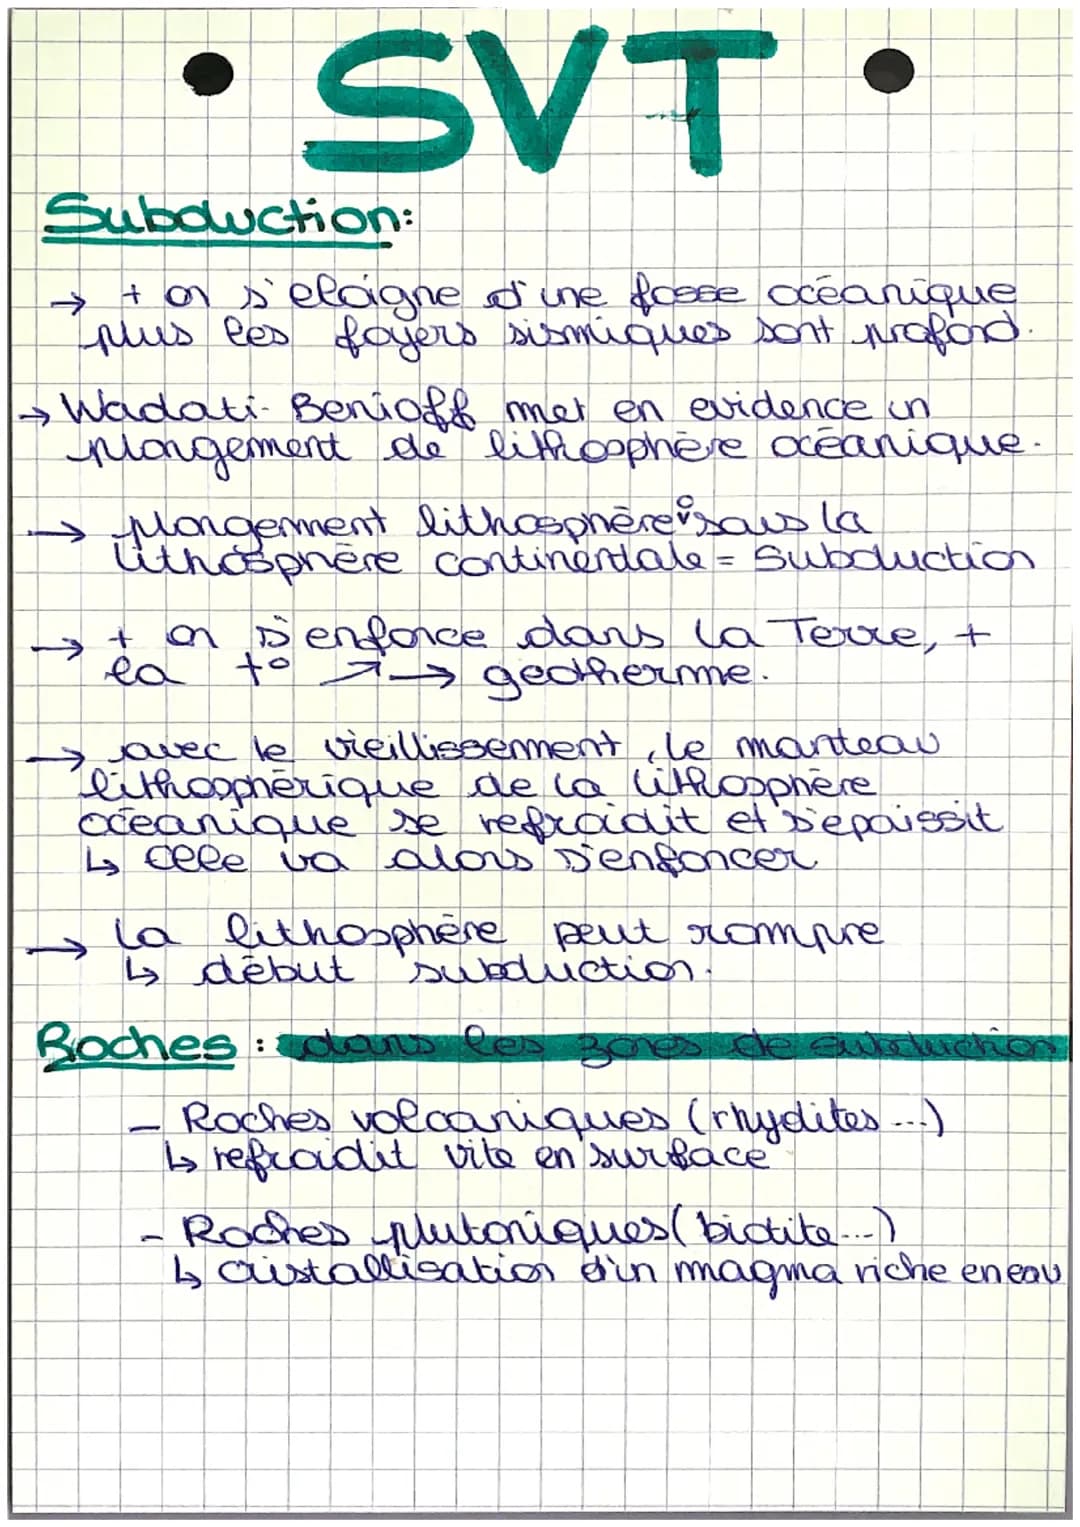 SVT
Subduction:
→ + on s'eloigne d'une fosse océanique
plus les foyers sismiques sont profond.
→ Wadati-Benioff met en evidence un
plongement de lithosphère océanique.
→ plongement lithosphère sous la
lithosphère continentale = Subduction
→ + on s'enfonce dans la Terre, +
la t° ↗ → geotherme.
→ avec le vieillissement, le manteau
lithosphérique de la lithosphère
océanique se refroidit et s'épaissit
↳ elle va alors s'enfoncer
→ la lithosphère peut rompre
↳ début subduction.
Roches : dans les zones de subduction
- Roches volcaniques (rhyolites ...)
↳ refroidit vite en surface
- Roches plutoniques (biotite...)
↳ cristallisation d'un magma riche en eau